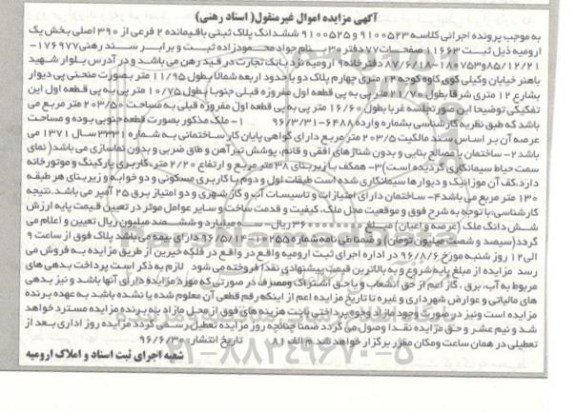 آگهی مزایده اموال غیرمنقول( اسناد رهنی)
به موجب پرونده اجرائی کلاسه ۹۱۰۰۵۲۳ و ۹۱۰۰۵۲۵ ششدانگ پلاک ثبتی باقیمانده ۲ فرعی از ۳۹۰ اصلی بخش یک
ارومیه ذیل ثبت ۱۱۶۶۳ صفحات ۷۷ دفتر ۳۰ بنام جواد محمودزاده ثبت و برابر سند رهنی ۱۷۶۹۷۷-
۸۵/۱۲/۲۱ دفترخانه ۹ ارومیه نزد بانک تجارت در قید رهن می باشد و در آدرس بلوار شهید
باهنر خیابان وکیلی کوی کاوه کوچه ۱۲ متری چهارم پلاک دو با حدود اربعه شمالا بطول ۱۱/۹۵ متر بصورت منحنی پی دیوار
بشارع ۱۲ متری شرقا بطول ۲۱/۷۰ متر پی به پی قطعه اول مفروزه قبلی جنوبا بطول ۱۰/۷۵ متر پی به پی قطعه اول این
تفکیکی غربا بطول ۱۶/۶۰ متر پی به پی قطعه اول مفروزه قبلی به مساحت ۲۰۳/۵۰ متر مربع می
باشد که طبق نظریه کارشناسی بشماره وارده ۶۴۸۸-۹۶/۲/۳۱ ۱- ملک مذکور بصورت قطعه جنوبی بوده و مساحت
عرصه آن بر اساس سند مالکیت ۲۰۳/۵ متر مربع دارای گواهی پایان کار ساختمانی به شماره سال ۱۳۷۱ می
باشد ۲- ساختمان با مصالح بنایی و بدون شناژهای افقی و قائم، پوشش تیرآهن و طاق ضربی و بدون نماسازی می باشد( نمای
سمت حیاط سیمانکاری گردیده است) ۳- همکف با زیربنای ۳۸ متر مربع و ارتفاع ۲/۲۰ متر، کاربری پارکینگ و موتورخانه
دارد، کف آن موزائیک و دیوارها سیمانکاری شده است طبقات اول و دوم با کاربری مسکونی و دو خوابه و زیربنای هر طبقه
۱۳۰ متر مربع می باشد ۴- ساختمان دارای امتیازات و تاسیسات آب و گاز شهری و دو امتیاز برق ۲۵ آمپر می باشد. نتیجه
کارشناسی: با توجه به شرح فوق و موقعیت محل ملک، کیفیت و قدمت ساخت و سایر عوامل موثر در تعیین قیمت پایه ارزش
شش دانگ ملک (عرصه و اعیان) ریال میلیارد و ششصد میلیون ریال تعیین و اعلام می
گردد(سیصد و شصت میلیون تومان) و ضمنا طی نامه شماره ۱۰۲۵۵۰-۹۶/۵/۱۲ دارای بیمه می باشد پلاک فوق از ساعت ۹
الی ۱۲ روز شنبه مورخ ۹۶/۸/۶ در اداره اجرای ثبت ارومیه واقع در واقع در فلکه خیرین از طریق مزایده به فروش می
رسد مزایده از مبلغ پایه شروع و به بالاترین قیمت پیشنهادی نقدا فروخته می شود لازم به ذکر است پرداخت بدهی های
مربوط به آب، برق، گاز اعم از حق انشعاب و یا حق اشتراک و مصرف در صورتی که مورد مزایده دارای آنها باشد و نیز بدهی
های مالیاتی و عوارض شهرداری و غیره تا تاریخ مزایده اعم از اینکه رقم قطعی آن معلوم شده یا نشده باشد به عهده برنده
مزایده است ونیز در صورت وجود مازاد وجوه پرداختی بابت هزینه های فوق از محل مازاد به برنده مزایده مسترد خواهد
شد و نیم عشر و حق مزایده نقدا وصول می گردد ضمنا چنانچه روز مزایده تعطیل رسمی گردد مزایده روز اداری بعد از
تعطیلی در همان ساعت ومکان مقرر برگزار خواهد شد. م الف ۸۱ تاریخ انتشار: ۹۶/۶/۳۰
شعبه اجرای ثبت اسناد و املاک ارومیه
۰۲۱-۸۸۳۴۹۶۷۰-۵